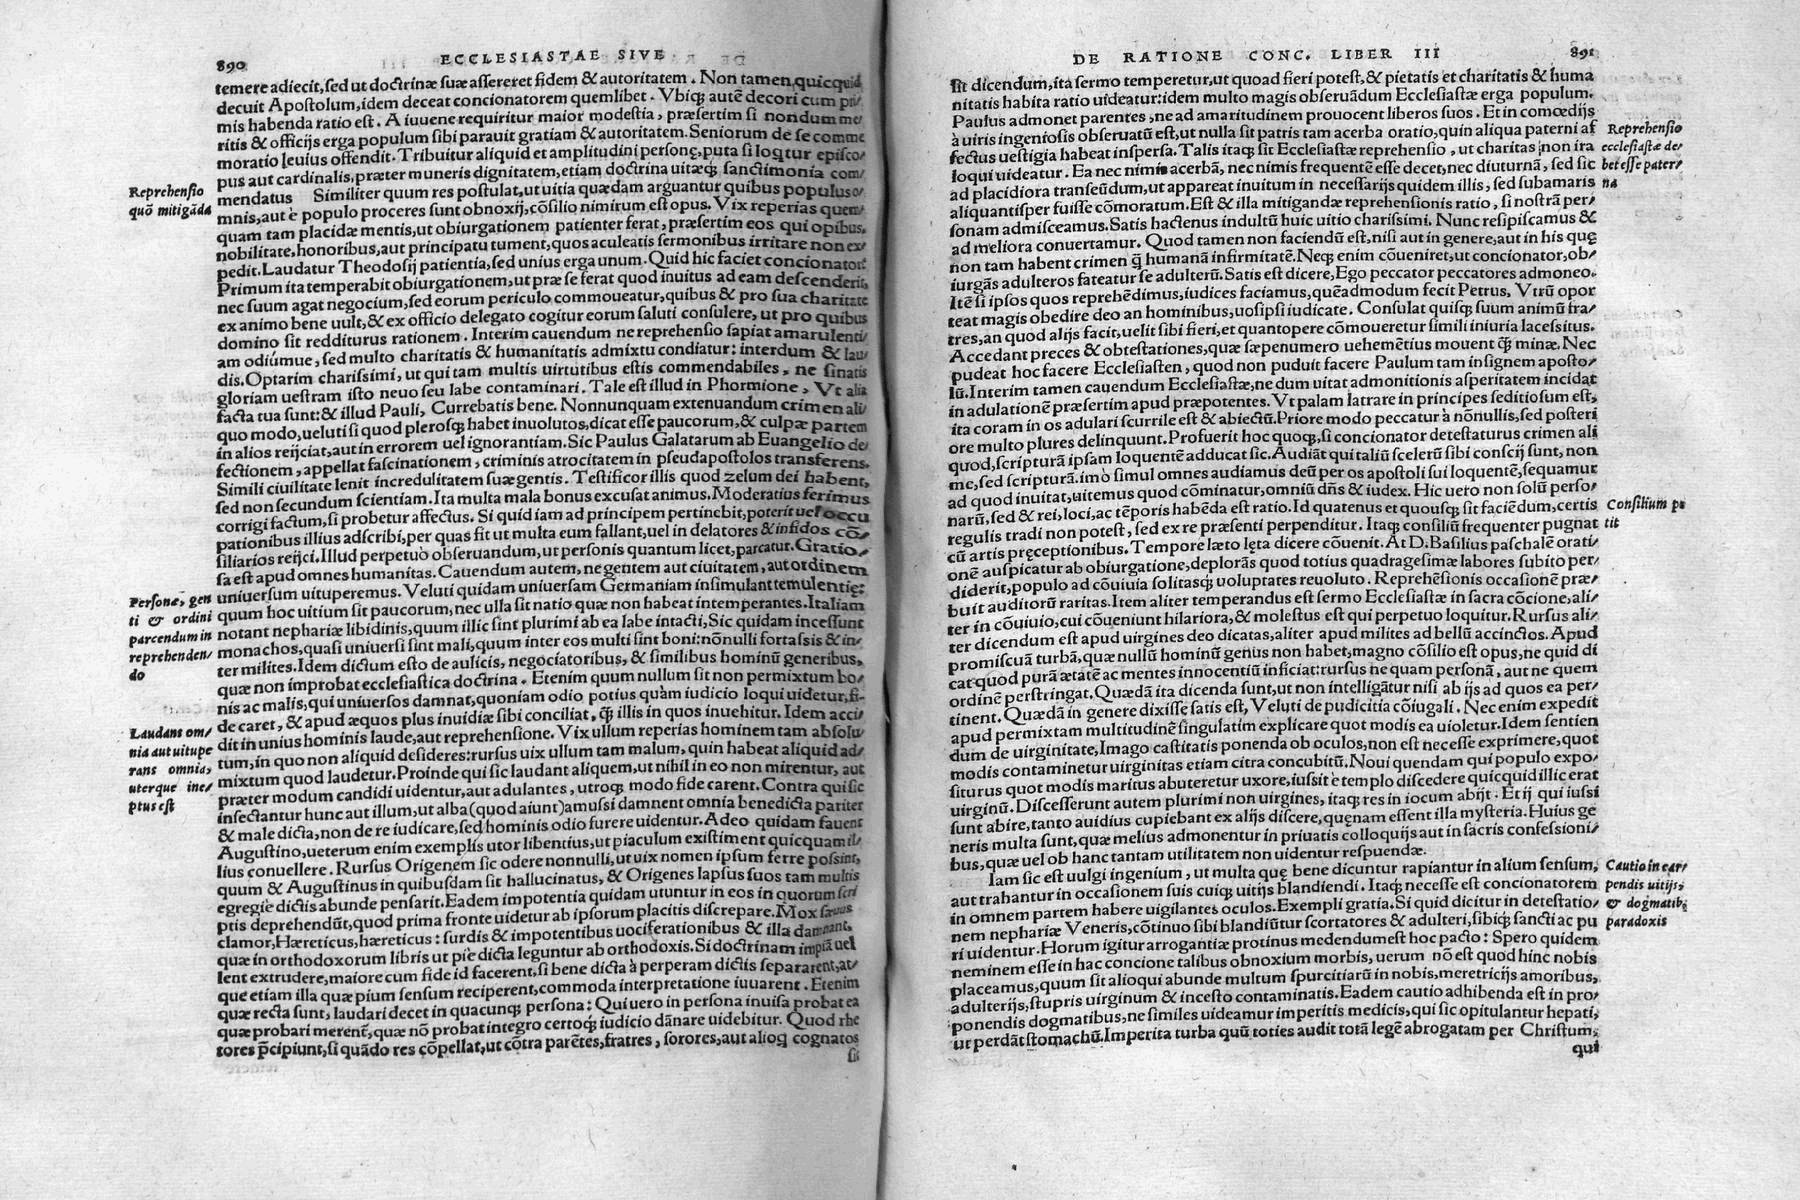 890
ECCLESIASTAE SIVE
temere adiecit, sed ut doctrinæ suæ assereret fidem & autoritatem. Non tamen quicquid
decuit Apostolum, idem deceat concionatorem quemlibet. Vbiq́; autē decori cum pri/
mis habenda ratio est. A iuuene requiritur maior modestia, præsertim si nondum me/
ritis & officijs erga populum sibi parauit gratiam & autoritatem. Seniorum de se comme
moratio leuius offendit. Tribuitur aliquid et amplitudini personę, puta si loq̃tur episco/
pus aut cardinalis, præter muneris dignitatem, etiam doctrina uitæq́; sanctimonia com/
mendatus Similiter quum res postulat, ut uitia quædam arguantur quibus populus o/
Reprehensio
quō mitigāda
mnis, aut è populo proceres sunt obnoxij, cōsilio nimirum est opus. Vix reperias quen/
quam tam placidæ mentis, ut obiurgationem patienter ferat, præsertim eos qui opibus,
nobilitate, honoribus, aut principatu tument, quos aculeatis sermonibus irritare non ex/
pedit. Laudatur Theodosij patientia, sed unius erga unum. Quid hic faciet concionator?
Primum ita temperabit obiurgationem, ut præ se ferat quod inuitus ad eam descenderit,
nec suum agat negocium, sed eorum periculo commoueatur, quibus & pro sua charitate
ex animo bene uult, & ex officio delegato cogitur eorum saluti consulere, ut pro quibus
domino sit redditurus rationem. Interim cauendum ne reprehensio sapiat amarulenti/
am odiúmue, sed multo charitatis & humanitatis admixtu condiatur: interdum & lau/
dis. Optarim charissimi, ut qui tam multis uirtutibus estis commendabiles, ne sinatis
gloriam uestram isto neuo seu labe contaminari. Tale est illud in Phormione, Vt alia
facta tua sunt: & illud Pauli, Currebatis bene. Nonnunquam extenuandum crimen ali/
quo modo, ueluti si quod plerosq́; habet inuolutos, dicat esse paucorum, & culpæ partem
in alios reijciat, aut in errorem uel ignorantiam. Sic Paulus Galatarum ab Euangelio de
fectionem, appellat fascinationem, criminis atrocitatem in pseudapostolos transferens.
Simili ciuilitate lenit incredulitatem suæ gentis. Testificor illis quod zelum dei habent,
sed non secundum scientiam. Ita multa mala bonus excusat animus. Moderatius ferimus
corrigi factum, si probetur affectus. Si quid iam ad principem pertinebit, poterit uel occu
pationibus illius adscribi, per quas fit ut multa eum fallant, uel in delatores & infidos cō/
siliarios reijci. Illud perpetuò obseruandum, ut personis quantum licet, parcatur. Gratio/
sa est apud omnes humanitas. Cauendum autem, ne gentem aut ciuitatem, aut ordinem
uniuersum uituperemus. Veluti quidam uniuersam Germaniam insimulant temulentię:
Personæ, gen
ti & ordini
parcendum in
reprehenden/
do
quum hoc uitium sit paucorum, nec ulla sit natio quæ non habeat intemperantes. Italiam
notant nephariæ libidinis, quum illic sint plurimi ab ea labe intacti, Sic quidam incessunt
monachos, quasi uniuersi sint mali, quum inter eos multi sint boni: nōnulli fortassis & in/
ter milites. Idem dictum esto de aulicis, negociatoribus, & similibus hominū generibus,
quæ non improbat ecclesiastica doctrina. Etenim quum nullum sit non permixtum bo/
nis ac malis, qui uniuersos damnat, quoniam odio potius quàm iudicio loqui uidetur, fi-
de caret, & apud æquos plus inuidiæ sibi conciliat, q̃ illis in quos inuehitur. Idem acci/
Laudans om/
nia aut uitupe
rans omnia,
uterque ine/
ptus est
dit in unius hominis laude, aut reprehensione. Vix ullum reperias hominem tam absolu
tum, in quo non aliquid desideres: rursus uix ullum tam malum, quin habeat aliquid ad/
mixtum quod laudetur. Proinde qui sic laudant aliquem, ut nihil in eo non mirentur, aut
præter modum candidi uidentur, aut adulantes, utroq́; modo fide carent. Contra qui sic
insectantur hunc aut illum, ut alba (quod aiunt) amussi damnent omnia benedicta pariter
& male dicta, non de re iudicare, sed hominis odio furere uidentur. Adeo quidam fauent
Augustino, ueterum enim exemplis utor libentius, ut piaculum existiment quicquam il/
lius conuellere. Rursus Origenem sic odere nonnulli, ut uix nomen ipsum ferre possint,
quum & Augustinus in quibusdam sit hallucinatus, & Origenes lapsus suos tam multis
egregiè dictis abunde pensarit. Eadem impotentia quidam utuntur in eos in quorum scri
ptis deprehendūt, quod prima fronte uidetur ab ipsorum placitis discrepare. Mox sæuus
clamor, Hæreticus, hæreticus: surdis & impotentibus uociferationibus & illa damnant,
quæ in orthodoxorum libris ut piè dicta leguntur ab orthodoxis. Si doctrinam impiā uel
lent extrudere, maiore cum fide id facerent, si bene dicta à perperam dictis separarent, at/
que etiam illa quæ pium sensum reciperent, commoda interpretatione iuuarent. Etenim
quæ recta sunt, laudari decet in quacunq́; persona: Qui uero in persona inuisa probat ea
quæ probari merent̃, quæ nō probat integro certoq́; iudicio dānare uidebitur. Quod rhe
tores p̄cipiunt, si quādo res cōpellat, ut cōtra parētes, fratres, sorores, aut alioq̃ cognatos
sit
DE RATIONE CONC. LIBER III
891
sit dicendum, ita sermo temperetur, ut quoad fieri potest, & pietatis et charitatis & huma
nitatis habita ratio uideatur: idem multo magis obseruādum Ecclesiastæ erga populum.
Paulus admonet parentes, ne ad amaritudinem prouocent liberos suos. Et in comœdijs
à uiris ingeniosis obseruatū est, ut nulla sit patris tam acerba oratio, quin aliqua paterni af
Reprehensio
ecclesiastæ de/
bet esse pater/
na
fectus uestigia habeat inspersa. Talis itaq́; sit Ecclesiastæ reprehensio, ut charitas non ira
loqui uideatur. Ea nec nimis acerbā, nec nimis frequentē esse decet, nec diuturnā, sed sic
ad placidiora transeūdum, ut appareat inuitum in necessarijs quidem illis, sed subamaris
aliquantisper fuisse cōmoratum. Est & illa mitigandæ reprehensionis ratio, si nostrā per/
sonam admisceamus. Satis hactenus indultū huic uitio charissimi. Nunc resipiscamus &
ad meliora conuertamur. Quod tamen non faciendū est, nisi aut in genere, aut in his quę
non tam habent crimen q̃ humanā infirmitatē. Neq́; enim cōueniret, ut concionator, ob/
iurgās adulteros fateatur se adulterū. Satis est dicere, Ego peccator peccatores admoneo.
Itē si ipsos quos reprehēdimus, iudices faciamus, quēadmodum fecit Petrus, Vtrū opor
teat magis obedire deo an hominibus, uosipsi iudicate. Consulat quisq́; suum animū fra/
tres, an quod alijs facit, uelit sibi fieri, et quantopere cōmoueretur simili iniuria lacessitus.
Accedant preces & obtestationes, quæ sæpenumero uehemētius mouent q̃ minæ. Nec
pudeat hoc facere Ecclesiasten, quod non puduit facere Paulum tam insignem aposto/
lū. Interim tamen cauendum Ecclesiastæ, ne dum uitat admonitionis asperitatem incidat
in adulationē præsertim apud præpotentes. Vt palam latrare in principes seditiosum est,
ita coram in os adulari scurrile est & abiectū. Priore modo peccatur à nōnullis, sed posteri
ore multo plures delinquunt. Profuerit hoc quoq́;, si concionator detestaturus crimen ali
quod, scripturā ipsam loquentē adducat sic. Audiāt qui taliū scelerū sibi conscij sunt, non
me, sed scripturā. imò simul omnes audiamus deū per os apostoli sui loquentē, sequamur
ad quod inuitat, uitemus quod cōminatur, omniū dñs & iudex. Hic uero non solū perso/
narū, sed & rei, loci, ac tēporis habēda est ratio. Id quatenus et quousq́; sit faciēdum, certis
Consilium pe
tit
regulis tradi non potest, sed ex re præsenti perpenditur. Itaq́; consiliū frequenter pugnat
cū artis pręceptionibus. Tempore læto lęta dicere cōuenit. At D. Basilius paschalē orati/
onē auspicatur ab obiurgatione, deplorās quod totius quadragesimæ labores subito per/
diderit, populo ad cōuiuia solitasq́; uoluptates reuoluto. Reprehēsionis occasionē præ/
buit auditorū raritas. Item aliter temperandus est sermo Ecclesiastæ in sacra cōcione, ali/
ter in cōuiuio, cui cōueniunt hilariora, & molestus est qui perpetuo loquitur. Rursus ali/
ter dicendum est apud uirgines deo dicatas, aliter apud milites ad bellū accinctos. Apud
promiscuā turbā, quæ nullū hominū genus non habet, magno cōsilio est opus, ne quid di
cat quod purā ætatē ac mentes innocentiū inficiat: rursus ne quam personā, aut ne quem
ordinē perstringat. Quædā ita dicenda sunt, ut non intelligātur nisi ab ijs ad quos ea per/
tinent. Quædā in genere dixisse satis est, Veluti de pudicitia cōiugali. Nec enim expedit
apud permixtam multitudinē singulatim explicare quot modis ea uioletur. Idem sentien
dum de uirginitate, Imago castitatis ponenda ob oculos, non est necesse exprimere, quot
modis contaminetur uirginitas etiam citra concubitū. Noui quendam qui populo expo/
siturus quot modis maritus abuteretur uxore, iussit è templo discedere quicquid illic erat
uirginū. Discesserunt autem plurimi non uirgines, itaq́; res in iocum abijt. Et ij qui iussi
sunt abire, tanto auidius cupiebant ex alijs discere, quęnam essent illa mysteria. Huius ge
neris multa sunt, quæ melius admonentur in priuatis colloquijs aut in sacris confessioni/
bus, quæ uel ob hanc tantam utilitatem non uidentur respuendæ.
Iam sic est uulgi ingenium, ut multa quę bene dicuntur rapiantur in alium sensum,
Cautio in car/
pendis uitijs,
& dogmatib.
paradoxis
aut trahantur in occasionem suis cuiq́; uitijs blandiendi. Itaq́; necesse est concionatorem
in omnem partem habere uigilantes oculos. Exempli gratia. Si quid dicitur in detestatio/
nem nephariæ Veneris, cōtinuo sibi blandiūtur scortatores & adulteri, sibiq́; sancti ac pu
ri uidentur. Horum igitur arrogantiæ protinus medendum est hoc pacto: Spero quidem
neminem esse in hac concione talibus obnoxium morbis, uerum nō est quod hinc nobis
placeamus, quum sit alioqui abunde multum spurcitiarū in nobis, meretricijs amoribus,
adulterijs, stupris uirginum & incesto contaminatis. Eadem cautio adhibenda est in pro/
ponendis dogmatibus, ne similes uideamur imperitis medicis, qui sic opitulantur hepati,
ut perdāt stomachū. Imperita turba quū toties audit totā legē abrogatam per Christum,
qui